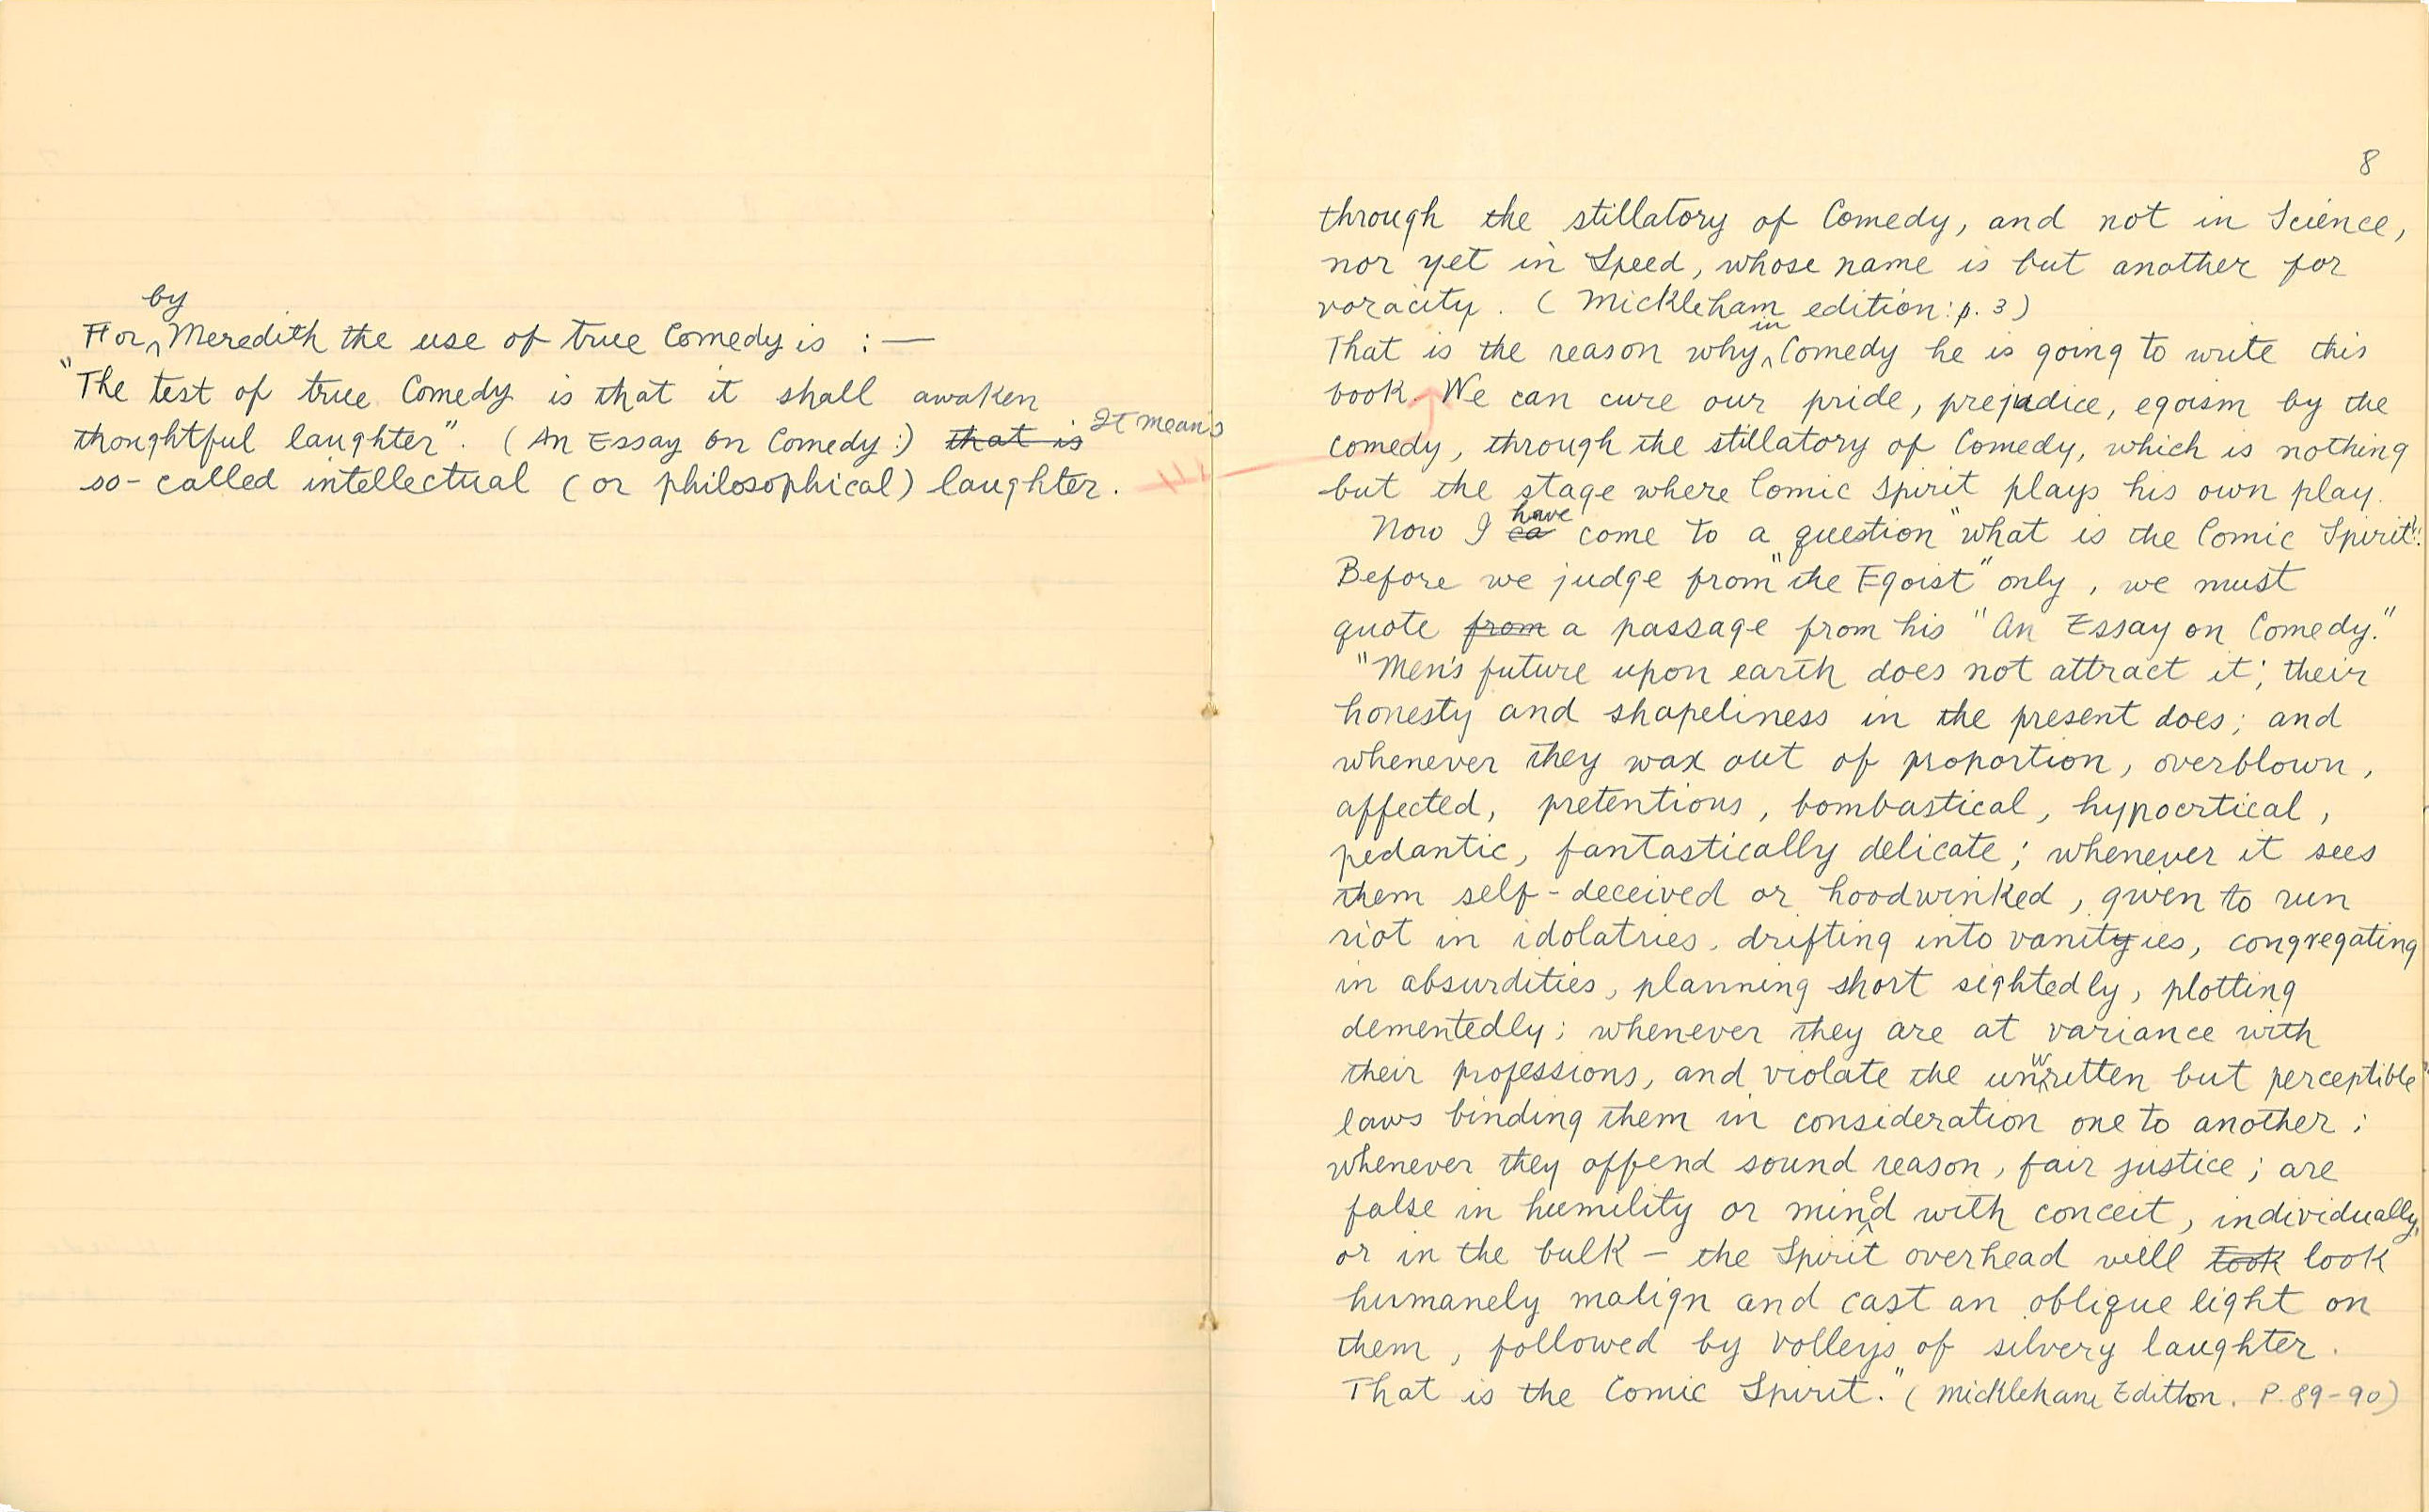 by
For Meredith the use of true Comedy is : —
"The test of true Comedy is that it shall awaken
thoughtful laughter". (An Essay on Comedy:) that is It means
so-called intellectual (or philosophical) laughter.
8
through the stillatory of Comedy, and not in Science,
nor yet in Speed, whose name is but another for
voracity. (Mickleham edition: p. 3)
That is the reason why in Comedy he is going to write this
book. We can cure our pride, prejudice, egoism by the
comedy, through the stillatory of Comedy, which is nothing
but the stage where Comic Spirit plays his own play.
Now I ca have come to a question "what is the Comic Spirit".
Before we judge from "the Egoist" only, we must
quote from a passage from his "An Essay on Comedy."
"Men's future upon earth does not attract it; their
honesty and shapeliness in the present does; and
whenever they wax out of proportion, overblown,
affected, pretentious, bombastical, hypocrtical,
pedantic, fantastically delicate; whenever it sees
them self-deceived or hoodwinked, given to run
riot in idolatries, drifting into vanityies, congregating
in absurdities, planning short sightedly, plotting
dementedly; whenever they are at variance with
their professions, and violate the unwritten but perceptible
laws binding them in consideration one to another;
whenever they offend sound reason, fair justice; are
false in humility or mined with conceit, individually,
or in the bulk — the Spirit overhead will took look
humanely malign and cast an oblique light on
them, followed by volleys of silvery laughter.
That is the Comic Spirit." (Mickleham Edition. P. 89-90)